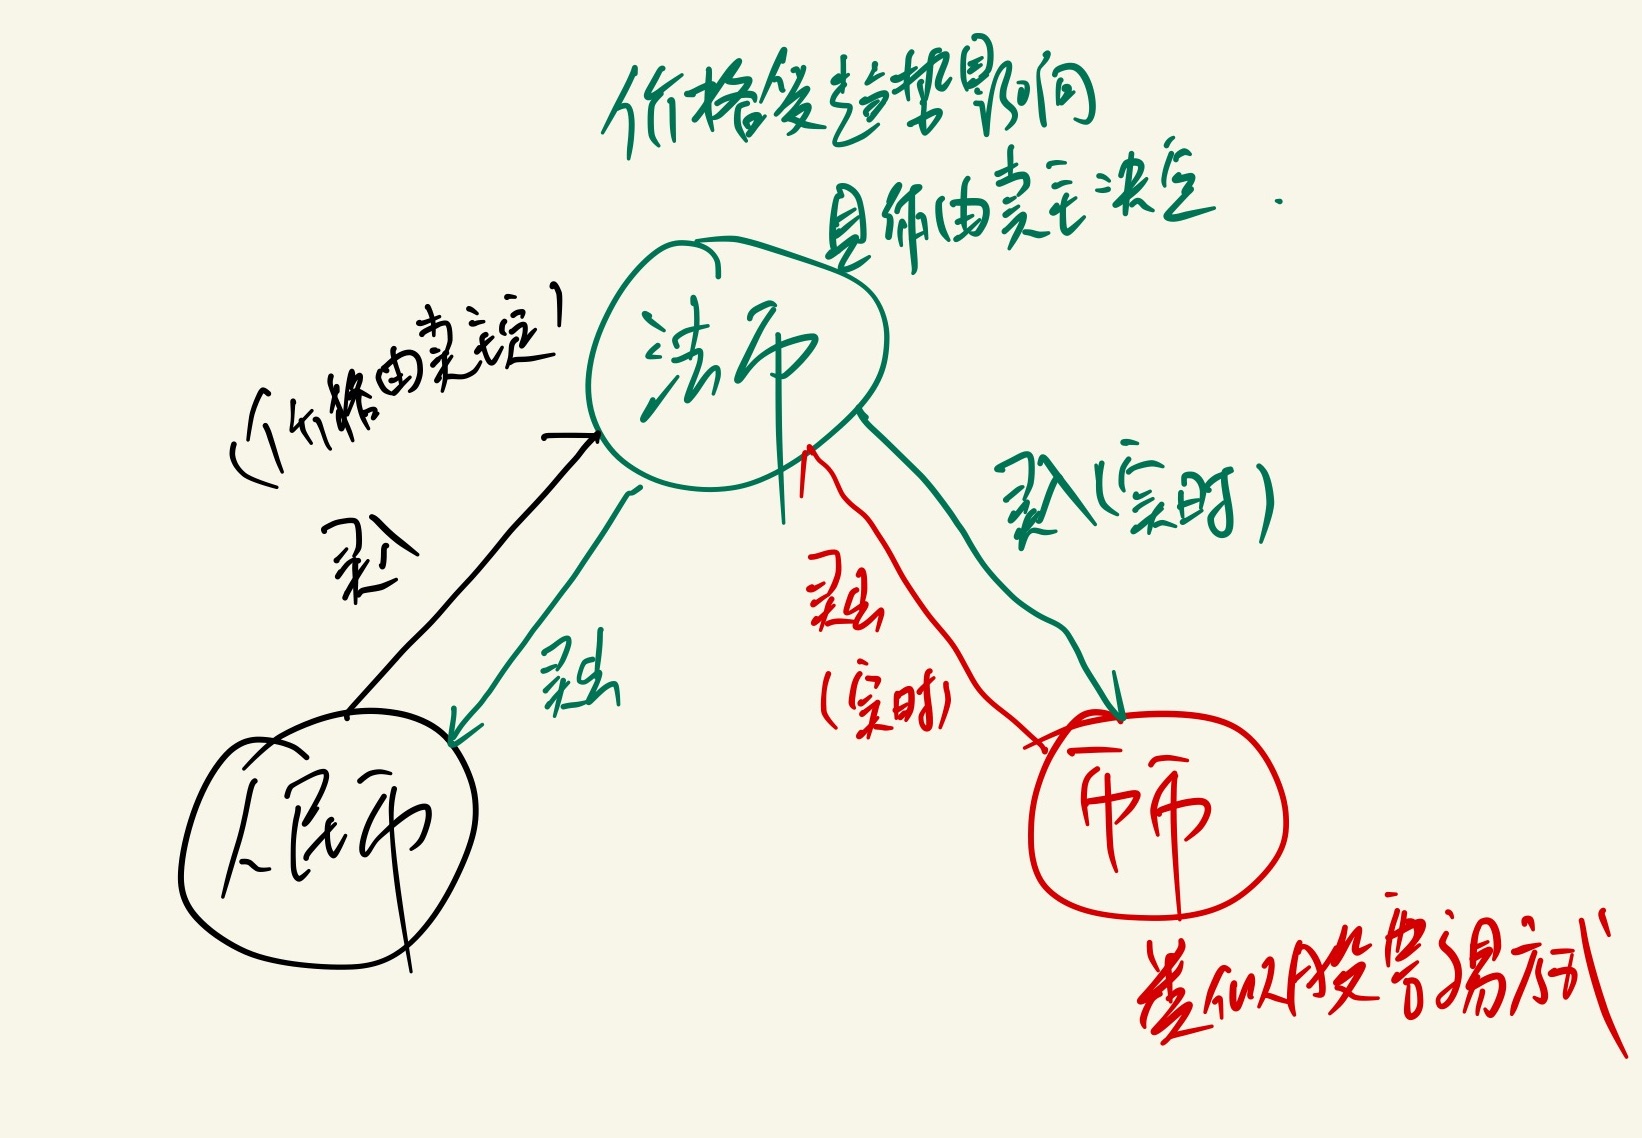 价格受趋势影响
具体由卖主决定.
(价格由卖主定)
法币
买入
卖出
买入(实时)
卖出
(实时)
人民币
币币
类似股票易方式